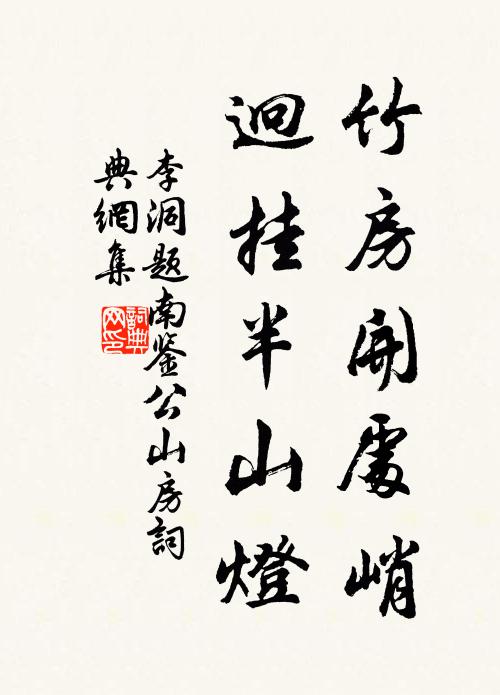 竹房開處峭
迥挂半山燈
李洞題南鉴公山房詞
典網集
詞典
网印